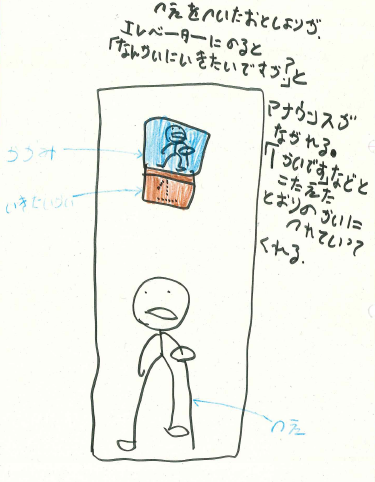 つえをついたおとしよりが、
エレベーターにのると
「なんかいにいきたいですか?」と
アナウンスが
ながれる。
「1かいです」などと
こたえた
とおりのかいに
つれていって
くれる。
うつみ
いきたいかい
つえ